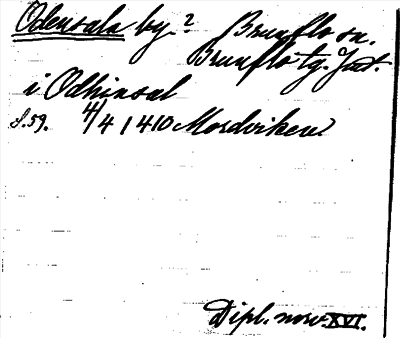 Odensala by.? Brunflo sn.
Brunflo tg. Jmt.
i Odhinsal
S. 59. 4/4 1410 Mordviken?
Dipl. norv. XVI.